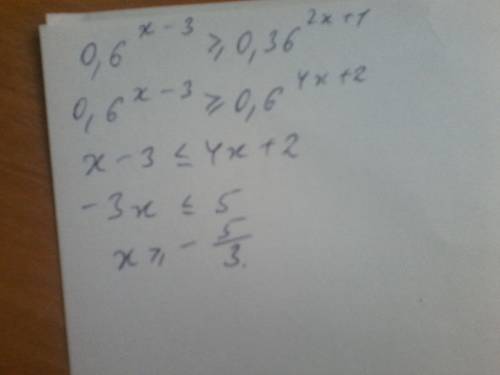 0,6^{x-3} ⩾ 0,36^{2x+1}
0,6^{x-3} ⩾ 0,6^{4x+2}
x - 3 ≤ 4x + 2
-3x ≤ 5
x ⩾ - \frac{5}{3}.